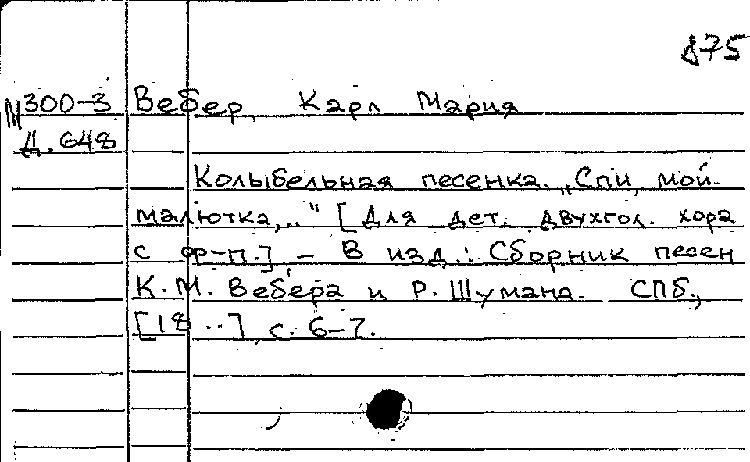 875
М300-3 Вебер, Карл Мария
Д. 648
Колыбельная песенка. „Спи, мой
малютка,.." [Для дет. двухгол. хора
с ф-п.] – В изд.: Сборник песен
К.М. Вебера и Р. Шумана. СПб.,
[18 ..] с. 6-7.